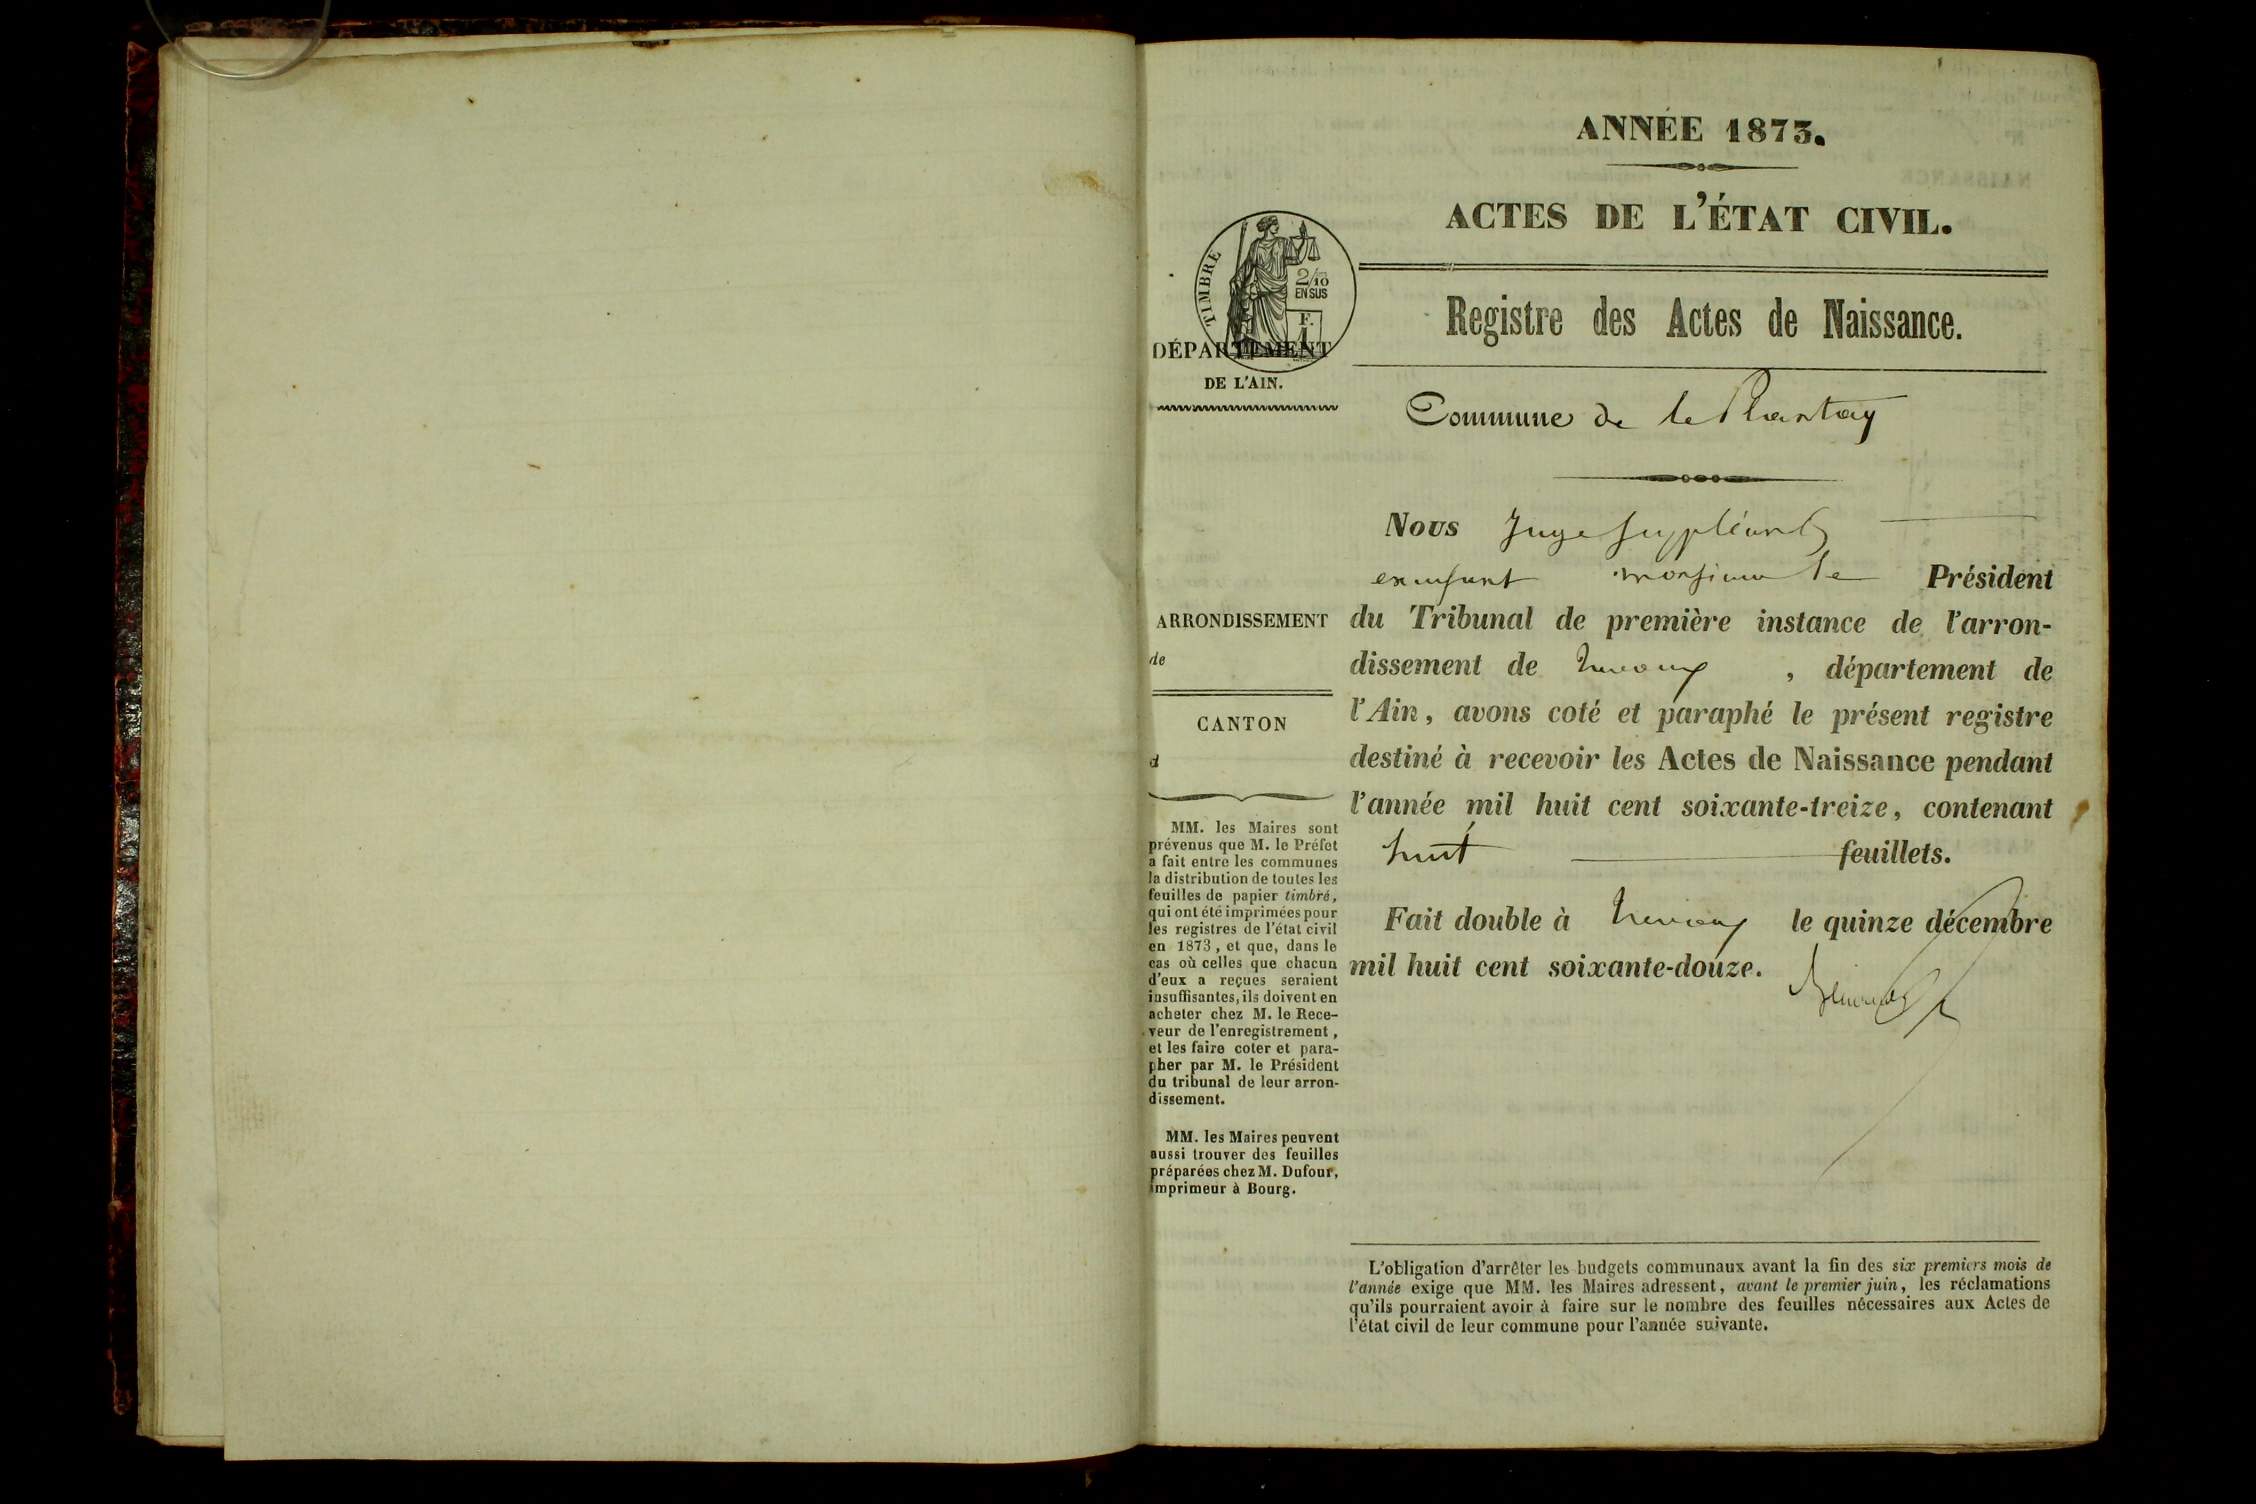 ANNÉE 1873.
ACTES DE L'ÉTAT CIVIL.
TIMBRE
2/10
EN SUS
F.
1
DÉPARTEMENT
DE L'AIN.
Registre des Actes de Naissance.
Commune de le Plantay
ARRONDISSEMENT
de
CANTON
d
MM. les Maires sont
prévenus que M. le Préfet
a fait entre les communes
la distribution de toutes les
feuilles de papier timbré,
qui ont été imprimées pour
les registres de l'état civil
en 1873, et que, dans le
cas où celles que chacun
d'eux a reçues seraient
insuffisantes, ils doivent en
acheter chez M. le Rece-
veur de l'enregistrement,
et les faire coter et para-
pher par M. le Président
du tribunal de leur arron-
dissement.
MM. les Maires peuvent
aussi trouver des feuilles
préparées chez M. Dufour,
imprimeur à Bourg.
Nous Juge Suppléant
monsieur le Président
du Tribunal de première instance de l'arron-
dissement de Trévoux, département de
l'Ain, avons coté et paraphé le présent registre
destiné à recevoir les Actes de Naissance pendant
l'année mil huit cent soixante-treize, contenant
huit feuillets.
Fait double à Trévoux le quinze décembre
mil huit cent soixante-douze.
L'obligation d'arrêter les budgets communaux avant la fin des six premiers mois de
l'année exige que MM. les Maires adressent, avant le premier juin, les réclamations
qu'ils pourraient avoir à faire sur le nombre des feuilles nécessaires aux Actes de
l'état civil de leur commune pour l'année suivante.